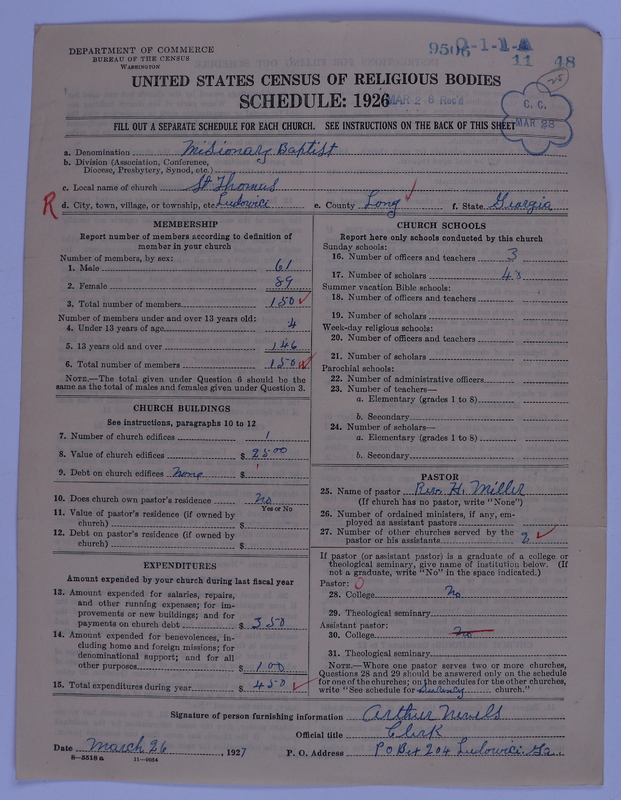 DEPARTMENT OF COMMERCE
BUREAU OF THE CENSUS
WASHINGTON
9506 O-1-1-A
11 48
UNITED STATES CENSUS OF RELIGIOUS BODIES
SCHEDULE: 1926 MAR 26 Rec'd
C. C.
MAR 28
FILL OUT A SEPARATE SCHEDULE FOR EACH CHURCH. SEE INSTRUCTIONS ON THE BACK OF THIS SHEET
a. Denomination Missionary Baptist
b. Division (Association, Conference, Diocese, Presbytery, Synod, etc.)
c. Local name of church St Thomas
R d. City, town, village, or township, etc. Ludowici e. County Long f. State Georgia
MEMBERSHIP
Report number of members according to definition of member in your church
Number of members, by sex:
1. Male 61
2. Female 89
3. Total number of members 150
Number of members under and over 13 years old:
4. Under 13 years of age 4
5. 13 years old and over 146
6. Total number of members 150
NOTE.—The total given under Question 6 should be the same as the total of males and females given under Question 3.
CHURCH BUILDINGS
See instructions, paragraphs 10 to 12
7. Number of church edifices 1
8. Value of church edifices $ 2500
9. Debt on church edifices None $
10. Does church own pastor's residence No
Yes or No
11. Value of pastor's residence (if owned by church) $
12. Debt on pastor's residence (if owned by church) $
EXPENDITURES
Amount expended by your church during last fiscal year
13. Amount expended for salaries, repairs, and other running expenses; for improvements or new buildings; and for payments on church debt $ 350
14. Amount expended for benevolences, including home and foreign missions; for denominational support; and for all other purposes $ 100
15. Total expenditures during year $ 450
CHURCH SCHOOLS
Report here only schools conducted by this church
Sunday schools:
16. Number of officers and teachers 3
17. Number of scholars
Summer vacation Bible schools:
18. Number of officers and teachers
19. Number of scholars
Week-day religious schools:
20. Number of officers and teachers
21. Number of scholars
Parochial schools:
22. Number of administrative officers
23. Number of teachers—
a. Elementary (grades 1 to 8)
b. Secondary
24. Number of scholars—
a. Elementary (grades 1 to 8)
b. Secondary
PASTOR
25. Name of pastor Rev H. Miller
(If church has no pastor, write "None")
26. Number of ordained ministers, if any, employed as assistant pastors
27. Number of other churches served by the pastor or his assistants 2
If pastor (or assistant pastor) is a graduate of a college or theological seminary, give name of institution below. (If not a graduate, write "No" in the space indicated.)
Pastor: 0
28. College No
29. Theological seminary
Assistant pastor:
30. College No
31. Theological seminary
NOTE.—Where one pastor serves two or more churches, Questions 28 and 29 should be answered only on the schedule for one of the churches; on the schedules for the other churches, write "See schedule for church."
Signature of person furnishing information Arthur Nevels
Official title Clerk
Date March 26, 1927 P. O. Address P O Box 204 Ludowici Ga.
8—5518 a 11—9034